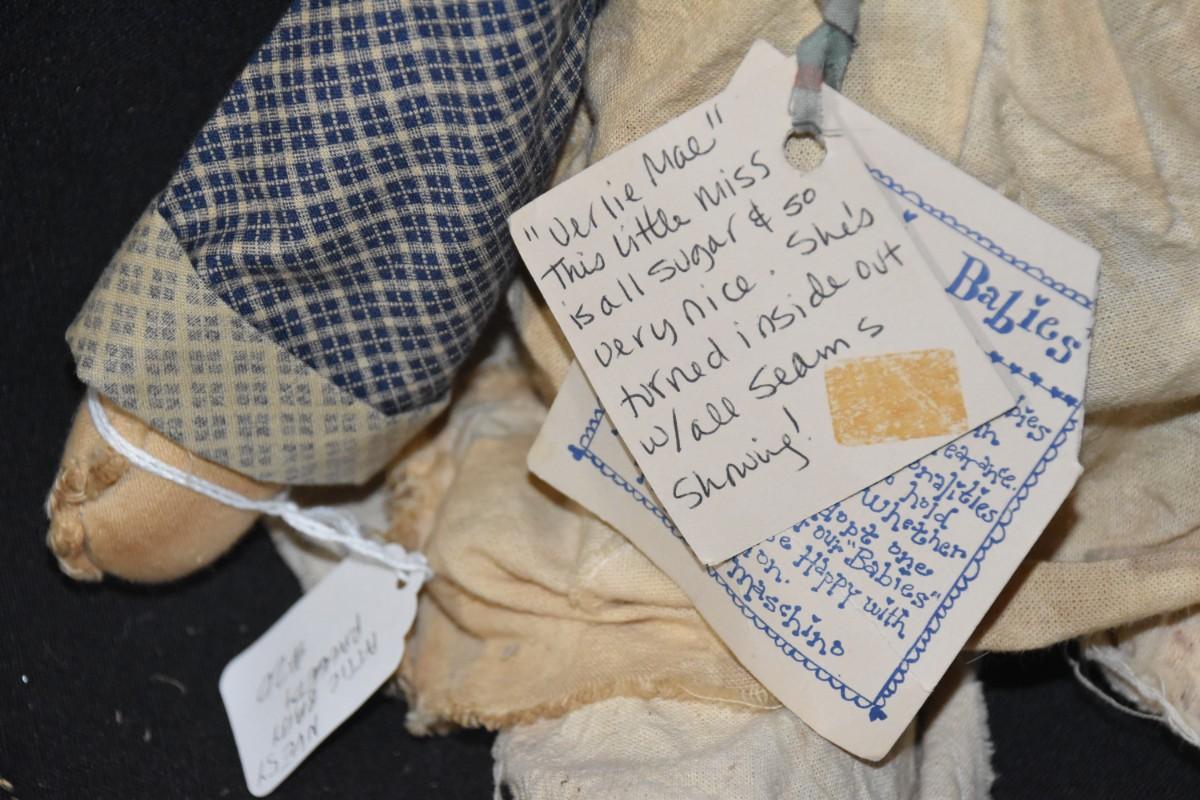 "Verlie Mae"
This little miss
is all sugar & so
very nice. She's
turned inside out
w/all seams
showing!
Babies
earance.
hold
Whether
one
our "Babies"
Happy with
on.
maschino
ATTIC
BABY
#20